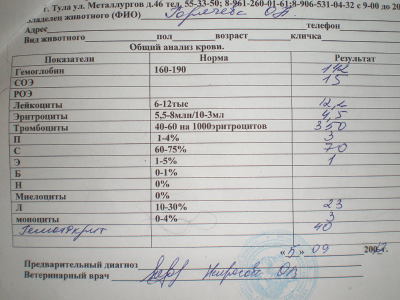 г. Тула ул. Металлургов д.46 тел. 55-33-50; 8-961-260-01-61;8-906-531-04-32 с 9-00 до 20
владелец животного (ФИО) Горячева О.
Адрес телефон
Вид животного пол возраст кличка
Общий анализ крови.
Показатели Норма Результат
Гемоглобин 160-190 142
СОЭ 15
РОЭ
Лейкоциты 6-12тыс
Эритроциты 5,5-8млн/10-3мл 4,5
Тромбоциты 40-60 на 1000эритроцитов 350
П 1-4% 3
С 60-75% 70
Э 1-5% 1
Б 0-1%
Н 0%
Миелоциты 0%
Л 10-30% 23
моноциты 0-4% 3
Гематокрит 40
«5» 09
Предварительный диагноз
Ветеринарный врач